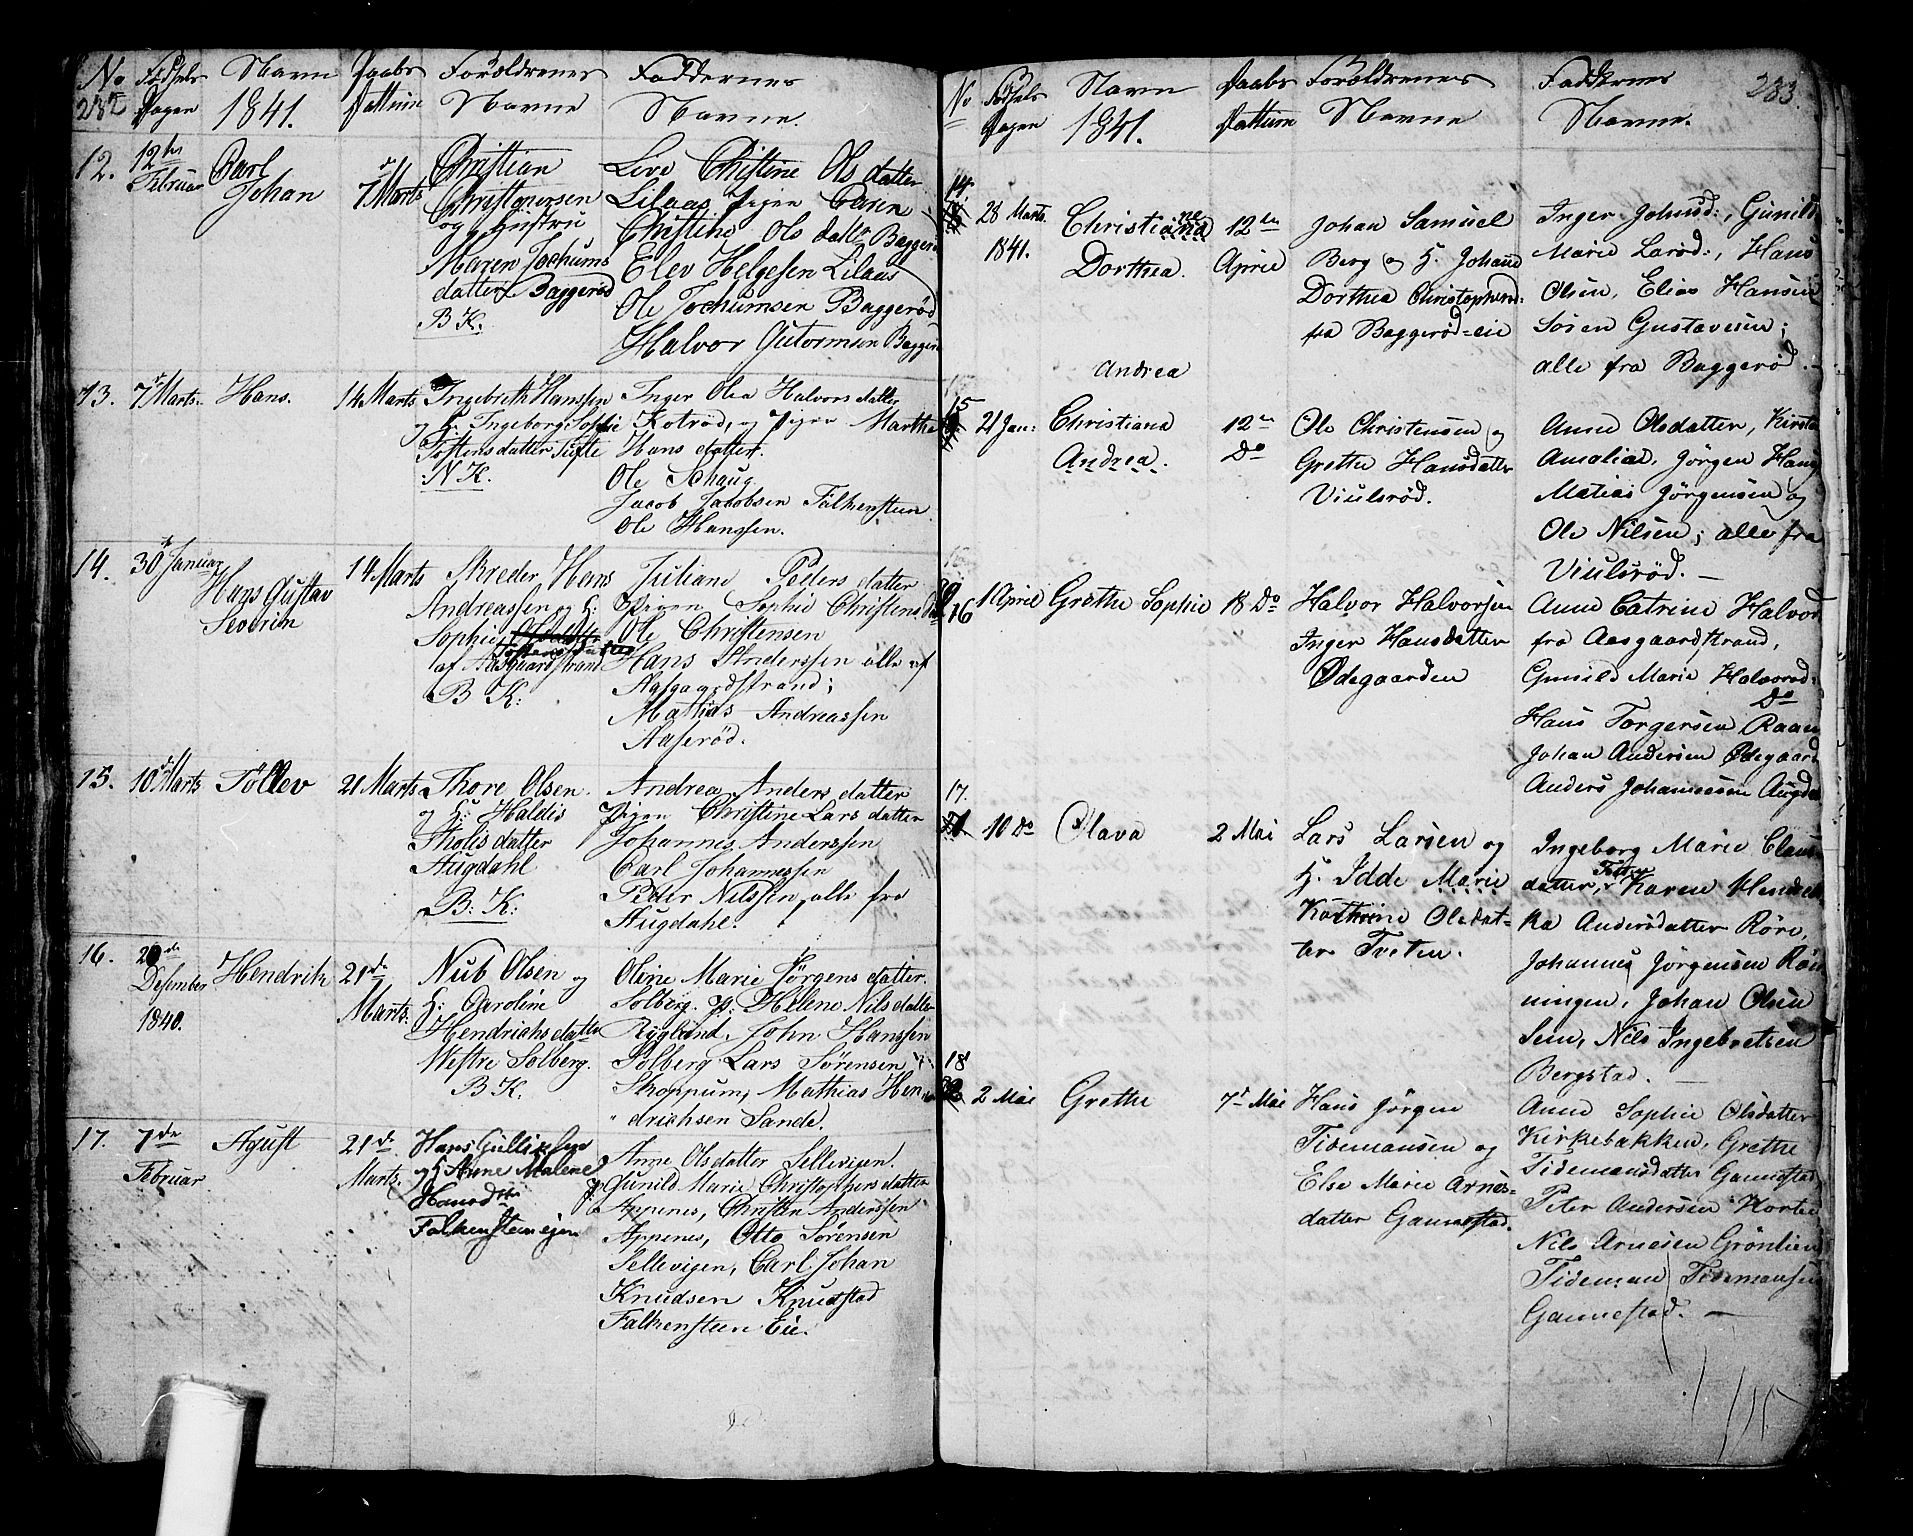 No Fødsels Navn Daabs Foroldrenes Faddernes
282 Dagen 1841. Dattum Navne Navne.
12. 12te Februar Carl Johan 7de Marts
Christian
Christophersen
og Hustru
Maren Jochums
datter Baggerød
B.K.
Live Christine Ols datter
Lilaas Pigen Caren
Christine Ols datr Baggerød
Elev Helgesen Lilaas
Ole Jochumsen Baggerød
Halvor Gutormsen Baggerø
13. 7de Marts. Hans. 14 Marts
Ingebreth Hanssen
og H: Ingeborg Sophie
Tostensdatter Tufte
N.K.
Inger Olea Halvors datter
Rotrød, og Pigen Marthe
Hans datter.
Ole Schaug
Jacob Jacobsen Falkensteen
Ole Hanssen.
14. 30te Januar Hans Gustav Severin 14 Marts
Skreder Hans
Andreassen og H:
Sophie
af Aasgaardstrand
B K:
Juliane Peders datter
Pigen Sophie Christensdatter
Ole Christensen
Hans Anderssen alle af
Aasgaardstrand;
Mathias Andreassen
Aaserød.
15. 10de Marts Tollev 21 Marts
Thore Olsen
og H: Haldis
Tholis datter
Augdahl
B: K:
Andrea Anders datter
Pigen Christine Lars datter
Johannes Anderssen
Carl Johannessen
Peder Nilssen, alle fra
Augdahl.
16. 20de Desember 1840. Hendrik 21de Marts.
Nub Olsen og
H: Caroline
Hendrichs datter
Westre Solberg.
B.K.
Oline Marie Jørgens datter.
Solberg. P: Helene Nils datter
Rygland, John Hanssen
Solberg Lars Sørensen
Skoppum, Mathias Hen
drichsen Sande.
17. 7de Februar Agust 21de Marts.
Hans Gullixsen
og H Anne Malene
Hansdtr
Falkensteneijen
Anne Olsdatter Sellevigen.
P Gunild Marie Christophersdatter
Appenes, Christen Anderssen
Appenes, Otto Sørensen
Sellevigen, Carl Johan
Knudsen Knudstad
Falkensteen Eie.
No Fødsels Navn Daabs Forældrenes Faddernes 283.
Dagen 1841. Dattum Navne Navne.
14 28 Marts 1841. Christiane Dorthea. 12te April
Johan Samuel
Berg og H. Johane
Dorthea Christophersd:
fra Baggerød-eie
Inger Johnsd:, Gunild
Marie Larsd:, Hans
Olsen, Elias Hansen
Søren Gustavesen;
alle fra Baggerød. -
Andrea
15 21 Jan: Christiana Andrea. 12te Do
Ole Christensen og
Grethe Hansdatter
Viulsrød.
Anne Olsdatter, Kirsti
Amalia, Jørgen Hans
Matias Jørgensen og
Ole Nilsen; alle fra
Viulsrød. -
16 1 April Grethe Sophie 18 Do
Halvor Halvorsen
Inger Hansdatter
Ødegaarden
Anne Catrine Halvord
fra Aasgaardstrand,
Gunild Marie Halvorsd:
Do
Hans Torgersen Raaen
Johan Andersen Ødegaard
Anders Johannesen Augdal
17. 10 Do Olava 2 Mai
Lars Larsen og
H. Idde Marie
Kathrine Olsdat-
ter Tveten.
Ingeborg Marie Claus
datter, Karen Hendrik
ka Andersdatter Røre,
Johannes Jørgensen Røn
ningen, Johan Olsen
Sem, Nils Ingebretsen
Bergstad. -
18 2 Mai Grethe 7de Mai
Hans Jørgen
Tidemansen og
Else Marie Arnes-
datter Gannestad.
Anne Sophie Olsdatter
Kirkebakken, Grethe
Tidemansdatter Gannestad
Peter Andersen Horten
Nils Arnesen Grønlien
Tideman Tidemansen
Gannestad. -